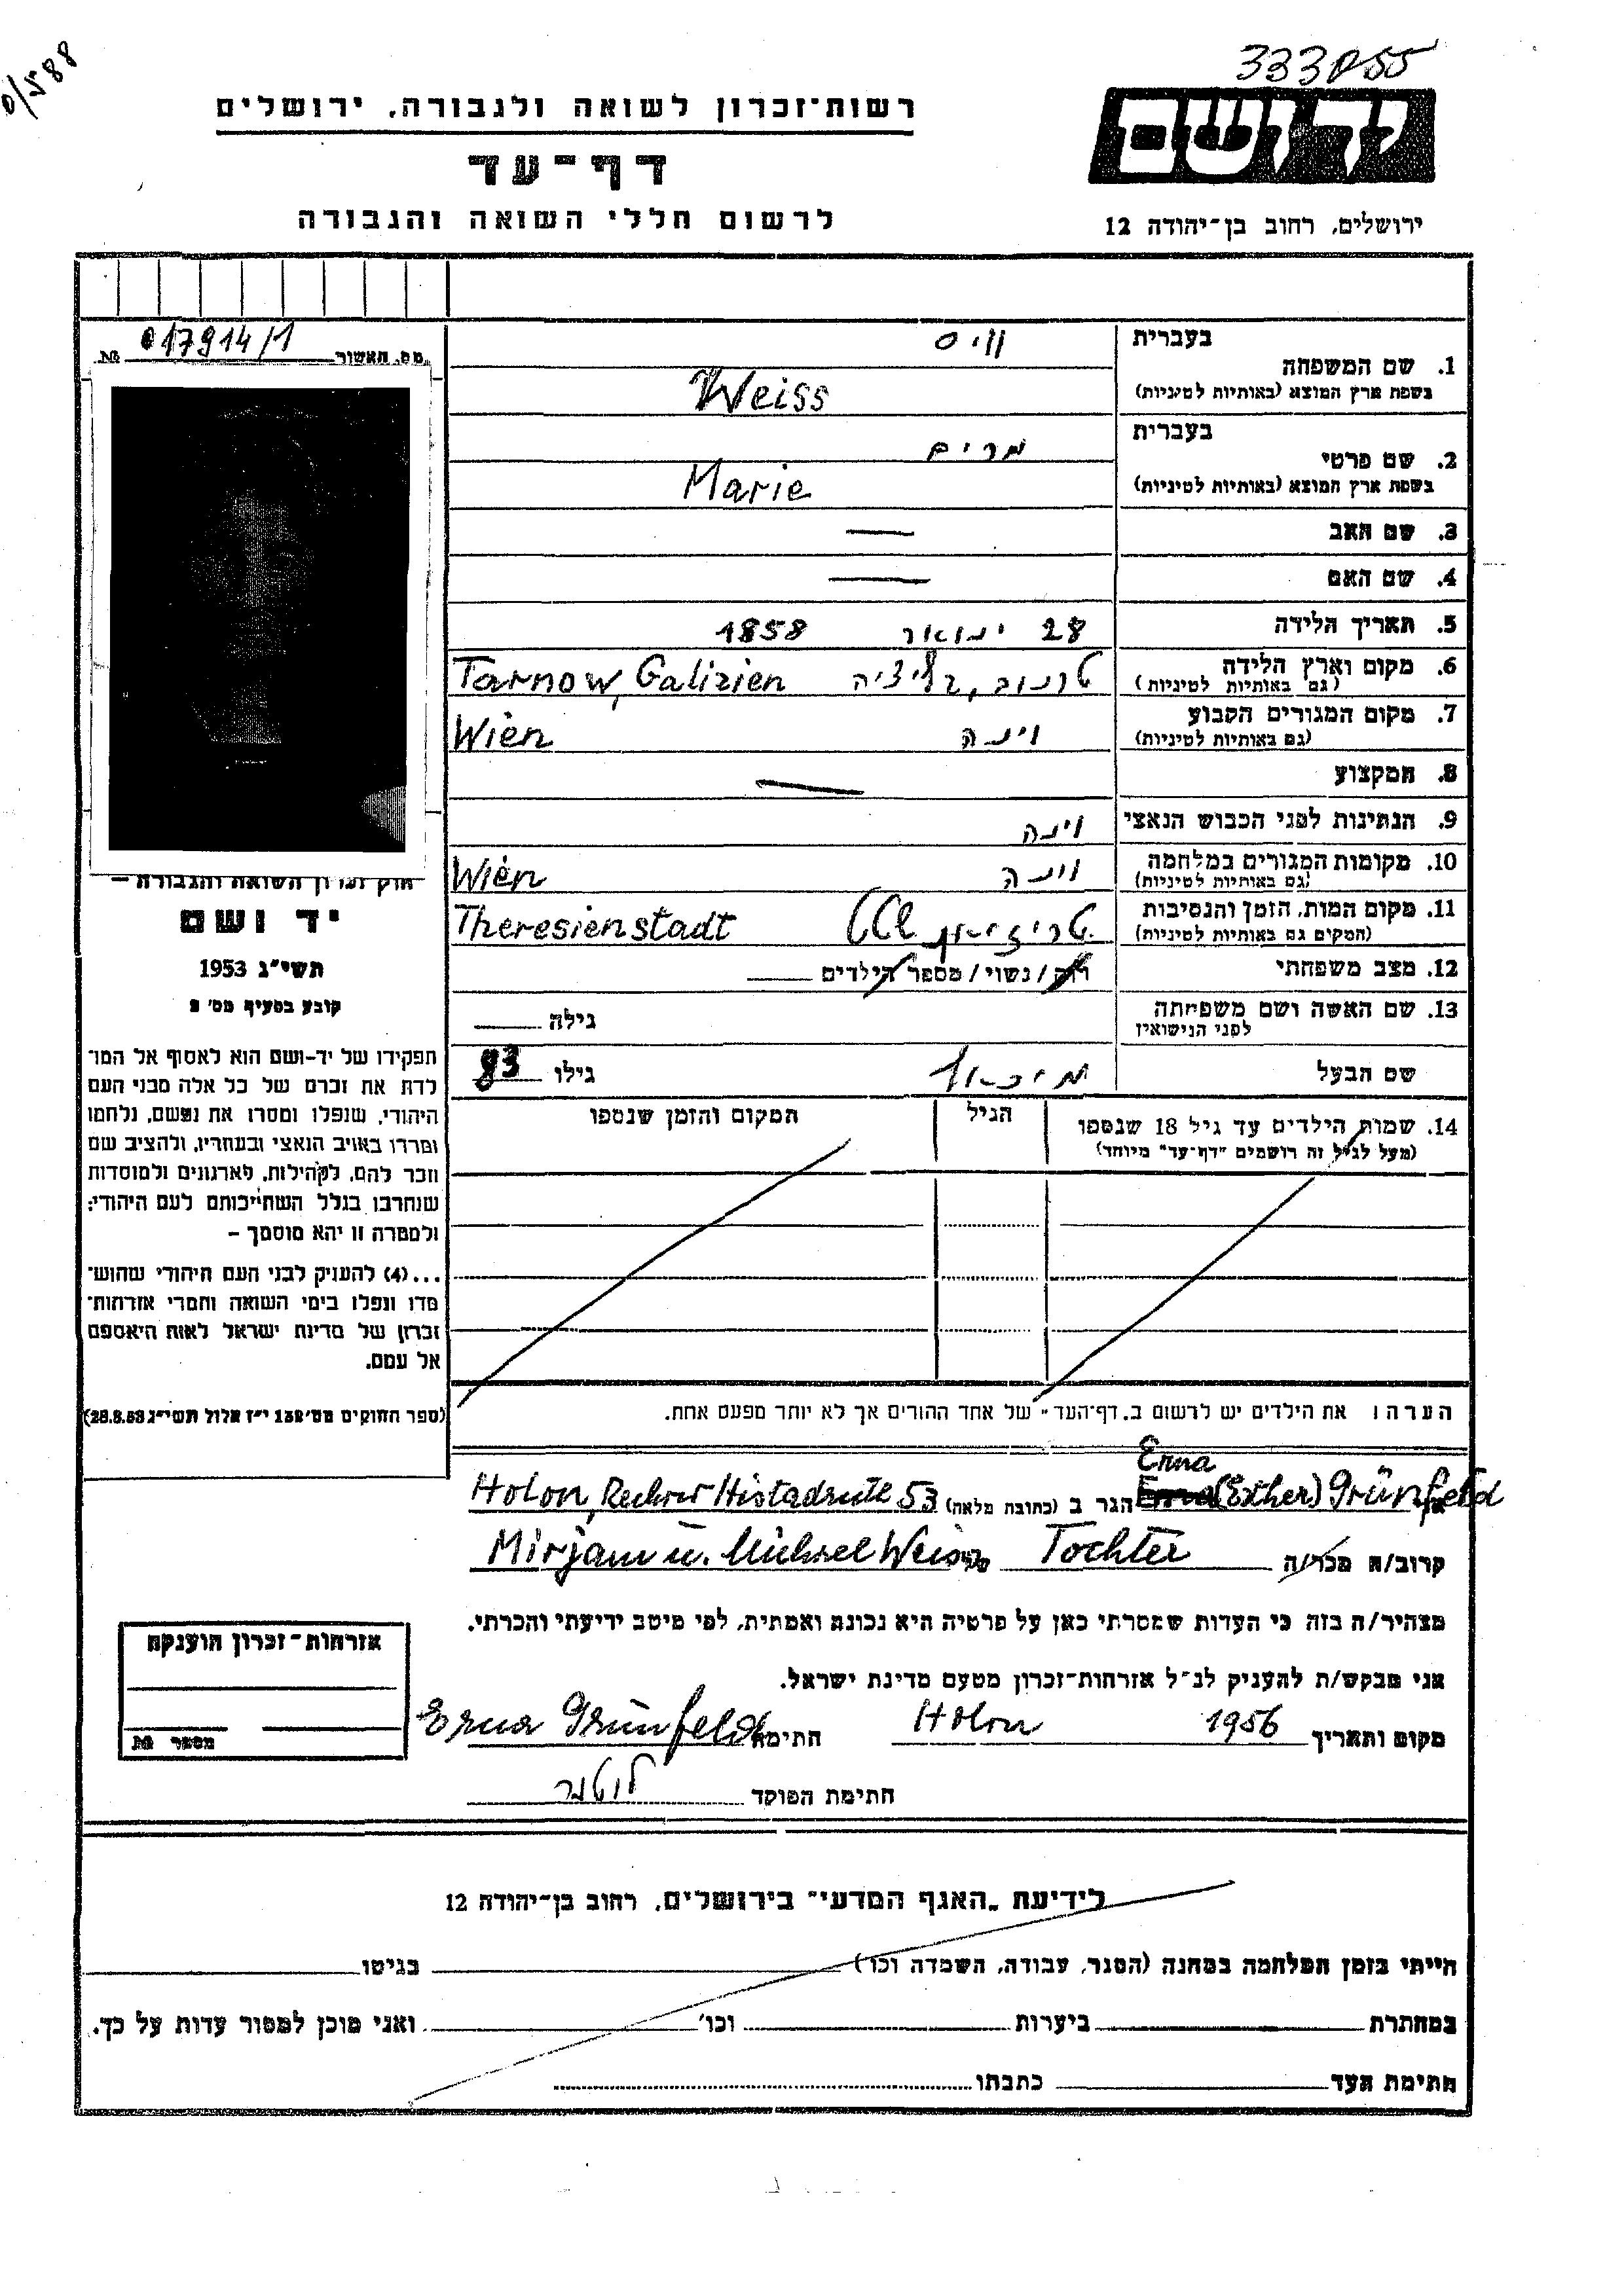 333055
0/588
רשות־זכרון לשואה ולגבורה, ירושלים
יד ושם
דף־עד
לרשום חללי השואה והגבורה
ירושלים, רחוב בן־יהודה 12
מס. תאשור № 017914/1
בעברית וויס
1. שם המשפחה
בשפת ארץ המוצא (באותיות לטיניות) Weiss
בעברית מרים
2. שם פרטי
בשפת ארץ המוצא (באותיות לטיניות) Marie
3. שם האב —
4. שם האם —
5. תאריך הלידה 28 ינואר 1858
6. מקום וארץ הלידה טרנוב, גליציה Tarnow, Galizien
(גם באותיות לטיניות)
7. מקום המגורים הקבוע וינה Wien
(גם באותיות לטיניות)
8. המקצוע —
9. הנתינות לפני הכבוש הנאצי וינה
10. מקומות המגורים במלחמה וינה Wien
(גם באותיות לטיניות)
11. מקום המות, הזמן והנסיבות Theresienstadt
(המקום גם באותיות לטיניות)
12. מצב משפחתי רוק/נשוי/מספר הילדים
13. שם האשה ושם משפחתה גילה
לפני הנישואין
שם הבעל מיכאל גילו 83
14. שמות הילדים עד גיל 18 שנספו הגיל המקום והזמן שנספו
(מעל לגיל זה רושמים "דף־עד" מיוחד)
חוק זכרון השואה והגבורה –
יד ושם
תשי"ג 1953
קובע בסעיף מס' 2
תפקידו של יד-ושם הוא לאסוף אל המו־
לדת את זכרם של כל אלה מבני העם
היהודי, שנפלו ומסרו את נפשם, נלחמו
ומרדו באויב הנאצי ובעוזריו, ולהציב שם
וזכר להם, לקהילות, לארגונים ולמוסדות
שנחרבו בגלל השתייכותם לעם היהודי;
ולמטרה זו יהא מוסמך –
...(4) להעניק לבני העם היהודי שהוש־
מדו ונפלו בימי השואה והמרי אזרחות־
זכרון של מדינת ישראל לאות היאספם
אל עמם.
(ספר החוקים מס' 132 י"ז אלול תשי"ג 28.8.53)
הערה: את הילדים יש לרשום ב„דף־העד" של אחד ההורים אך לא יותר מפעם אחת.
Erna
אני (Esther) Grünfeld הגר ב (כתובת מלאה) Holon, Rechov Histadrute 53
קרוב/ה מכר/ה Tochter של Mirjam u. Michael Weiss
מצהיר/ה בזה כי העדות שמסרתי כאן על פרטיה היא נכונה ואמתית, לפי מיטב ידיעתי והכרתי.
אני מבקש/ת להעניק לנ"ל אזרחות־זכרון מטעם מדינת ישראל.
מקום ותאריך 1956 Holon חתימה Erna Grünfeld
חתימת הפוקד
אזרחות־זכרון הוענקה
מספר №
לידיעת „האגף המדעי" בירושלים, רחוב בן־יהודה 12
הייתי בזמן המלחמה במחנה (הסגר, עבודה, השמדה וכו') בגיטו
במחתרת ביערות וכו' ואני מוכן למסור עדות על כך.
חתימת העד כתבתו